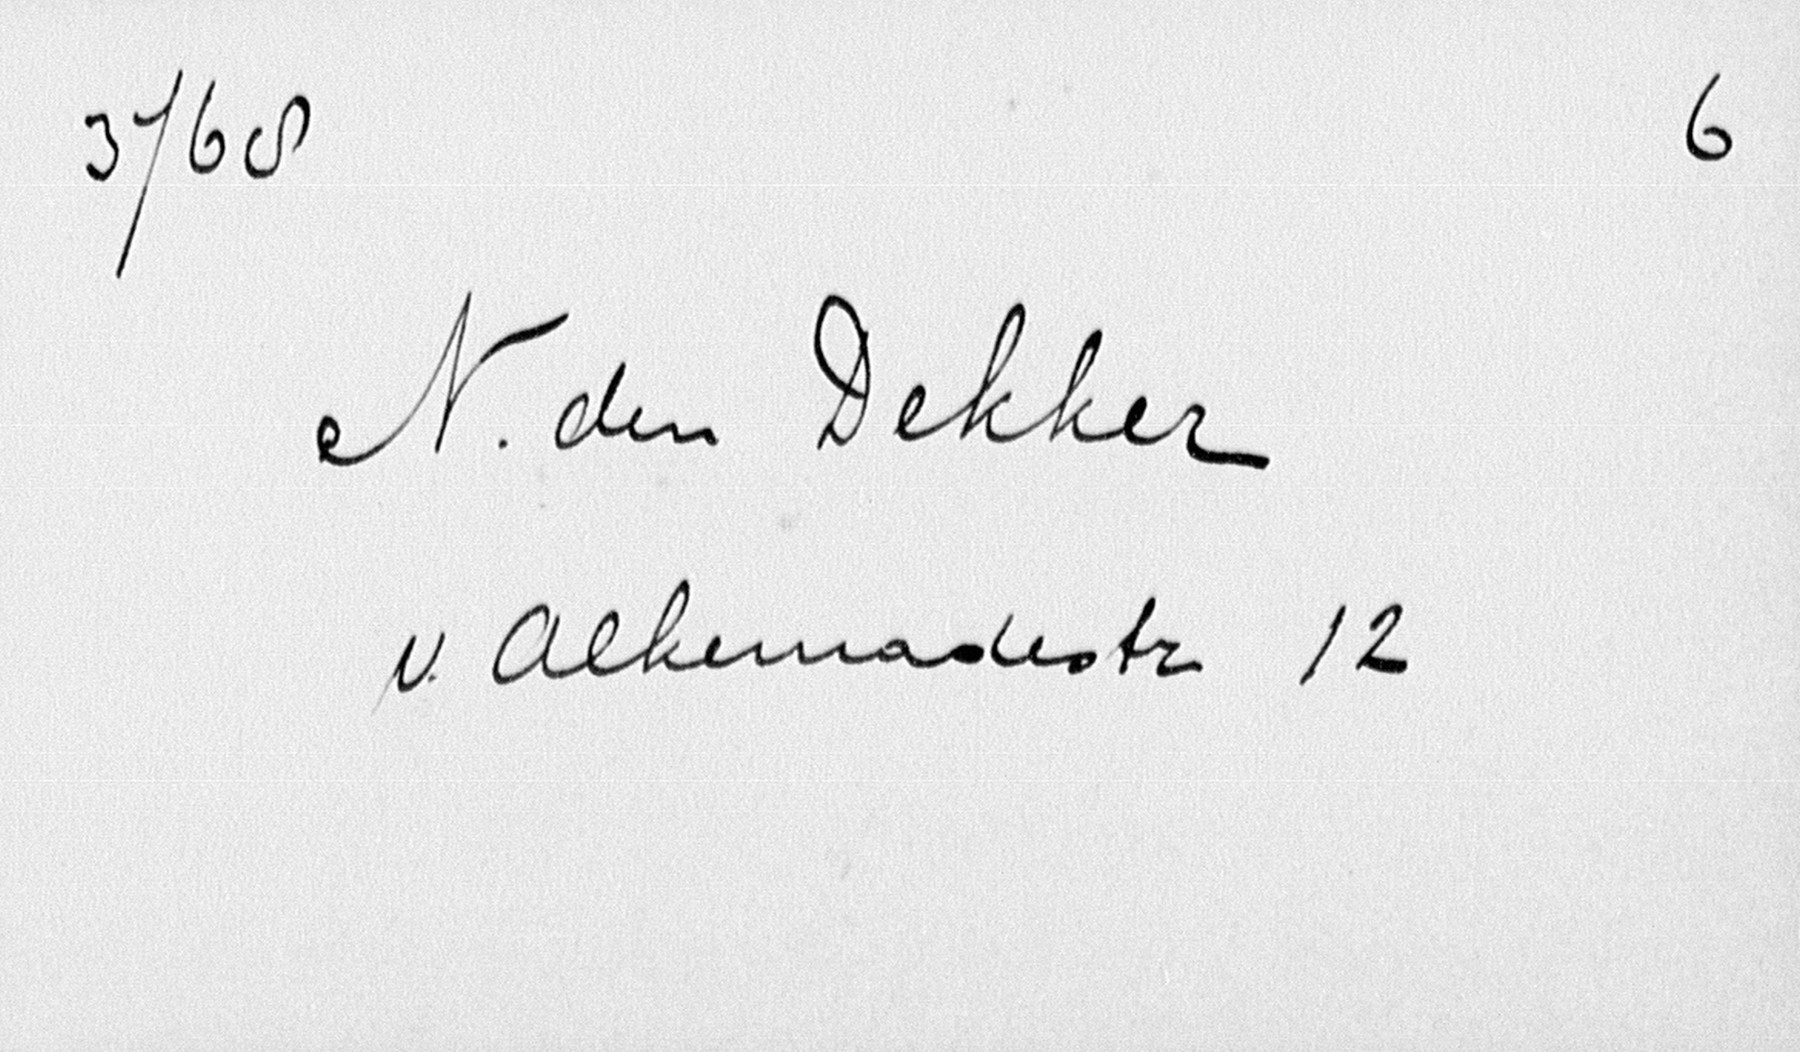 3/68 6
N. den Dekker
v. Alkemadestr 12